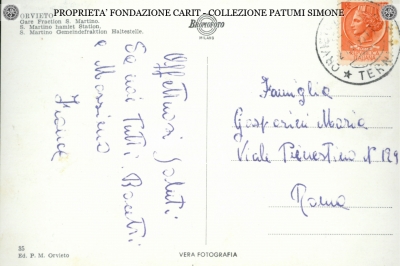 PROPRIETA' FONDAZIONE CARIT - COLLEZIONE PATUMI SIMONE
ORVIETO
Gare Fraction S. Martino.
S. Martino hamlet Station.
S. Martino Gemeindefraktion Haltestelle.
BROMOFOTO
MILANO
TERNI
ORVIETO
Affettuosi Saluti
Ea noi Tutti. Bacetti
a Massimo
Franca
Famiglia
Gasparini Maria
Viale Prenestino N 129
Roma
35
Ed. P. M. Orvieto
VERA FOTOGRAFIA